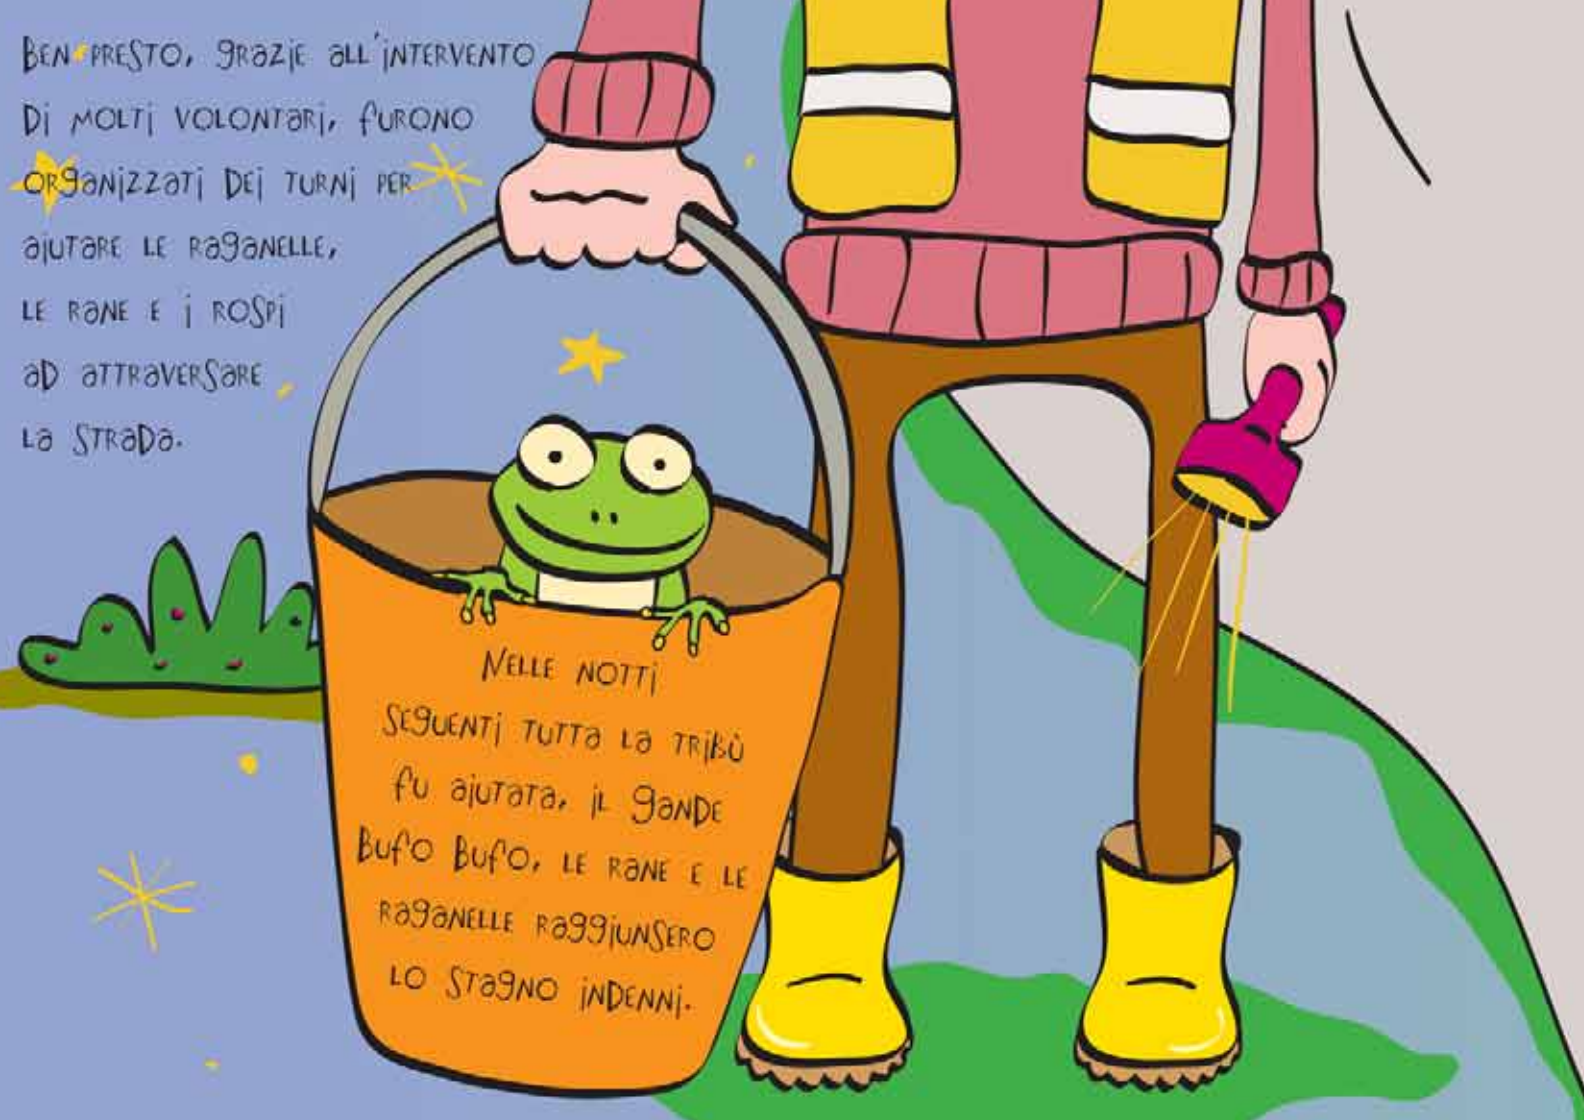 Ben presto, grazie all'intervento
di molti volontari, furono
organizzati dei turni per
aiutare le raganelle,
le rane e i rospi
ad attraversare
la strada.
Nelle notti
seguenti tutta la tribù
fu aiutata, il gande
Bufo Bufo, le rane e le
raganelle raggiunsero
lo stagno indenni.